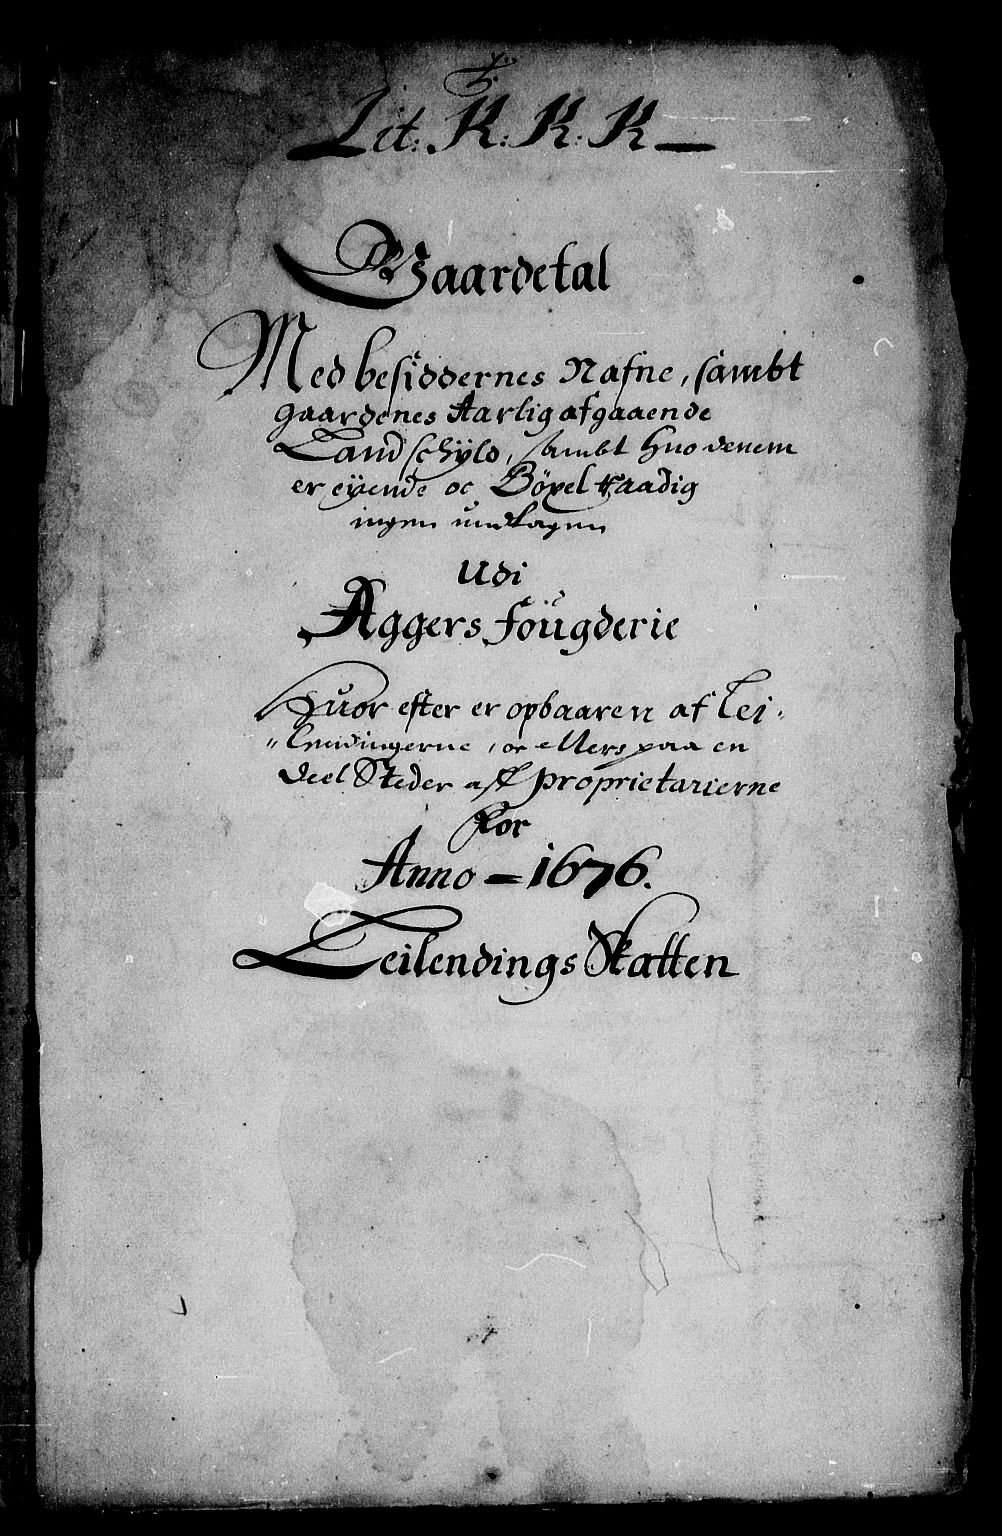 Lit: K: K: K
Gaardetal
Med besiddernes Nafne, sambt
gaardenes Aarlig afgaaende
Landschyld, sambt huo denem
er eyende oc Böxel raadig
ingen undtagen
Udi
Aggers fougderie
Huor efter er opbaaren af Lei-
lendingerne, oc ellers paa en
deel Steder aff proprietarierne
for
Anno - 1676.
Leilendings Skatten